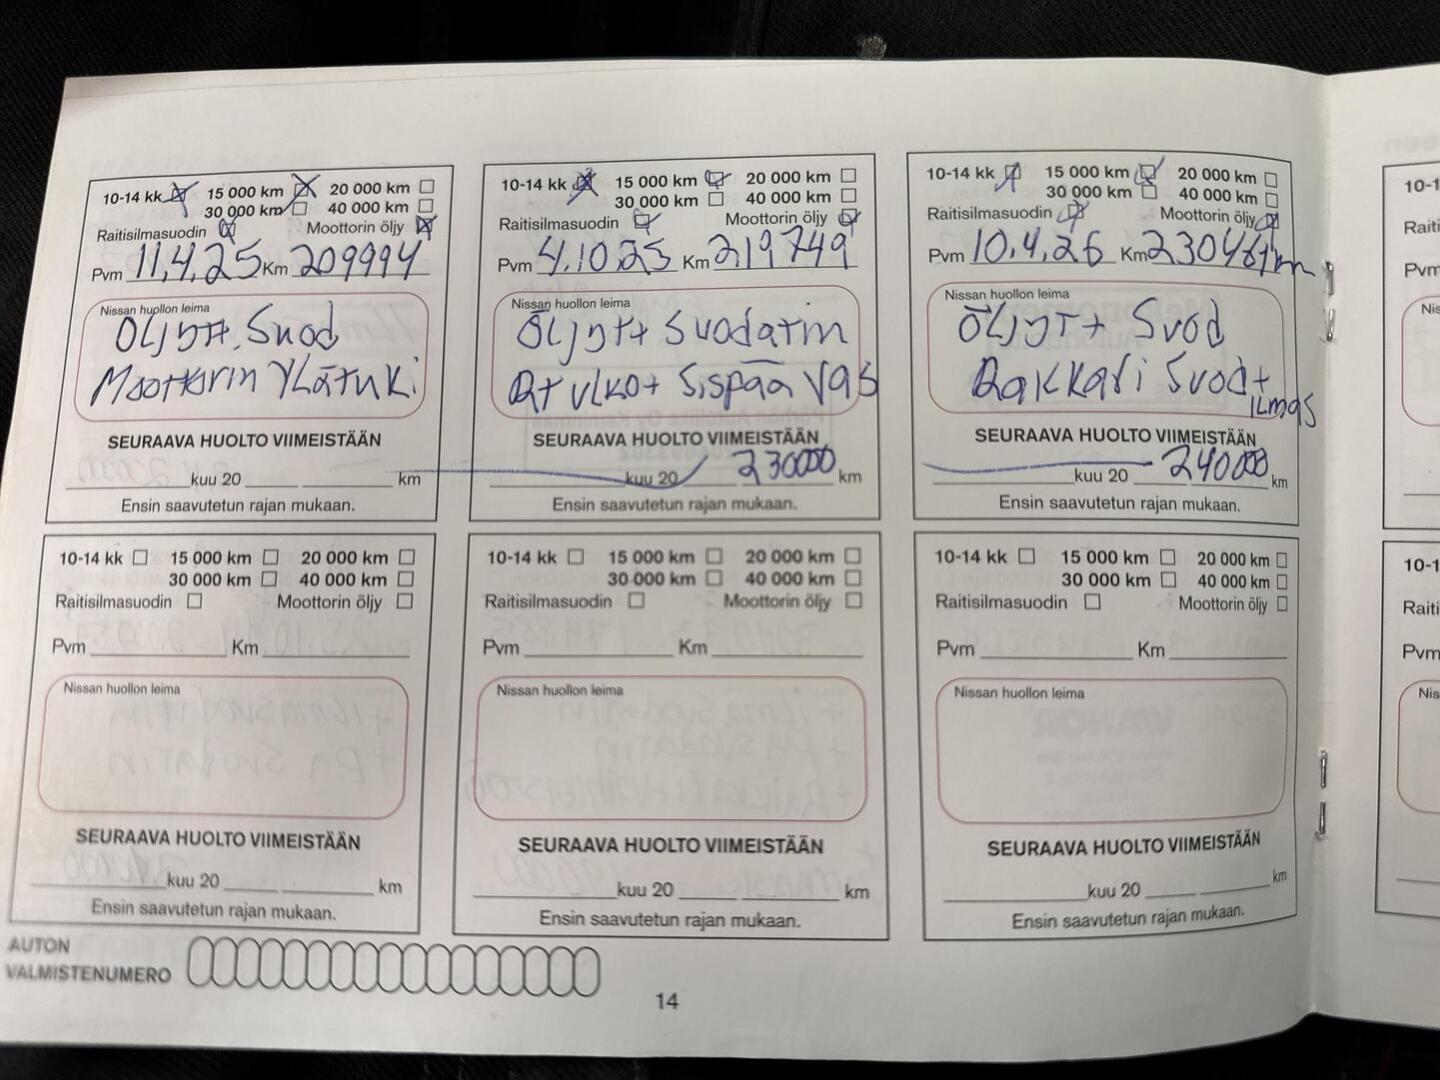 10-14 kk 15 000 km 20 000 km
30 000 km 40 000 km
Raitisilmasuodin Moottorin öljy
Pvm 11.4.25 Km 209994
Nissan huollon leima
Öljyt+ Suod
Moottorin Ylätuki
SEURAAVA HUOLTO VIIMEISTÄÄN
kuu 20 km
Ensin saavutetun rajan mukaan.
10-14 kk 15 000 km 20 000 km
30 000 km 40 000 km
Raitisilmasuodin Moottorin öljy
Pvm 4.10.25 Km 219749
Nissan huollon leima
Öljyt+ Suodatin
Rt ulko+ Sispää vas
SEURAAVA HUOLTO VIIMEISTÄÄN
kuu 20 230000 km
Ensin saavutetun rajan mukaan.
10-14 kk 15 000 km 20 000 km
30 000 km 40 000 km
Raitisilmasuodin Moottorin öljy
Pvm 10.4.26 Km
Nissan huollon leima
Öljyt+ Suod
Rakkari Suod+
ilmas
SEURAAVA HUOLTO VIIMEISTÄÄN
kuu 20 240000 km
Ensin saavutetun rajan mukaan.
10-14 kk 15 000 km 20 000 km
30 000 km 40 000 km
Raitisilmasuodin Moottorin öljy
Pvm Km
Nissan huollon leima
SEURAAVA HUOLTO VIIMEISTÄÄN
kuu 20 km
Ensin saavutetun rajan mukaan.
10-14 kk 15 000 km 20 000 km
30 000 km 40 000 km
Raitisilmasuodin Moottorin öljy
Pvm Km
Nissan huollon leima
SEURAAVA HUOLTO VIIMEISTÄÄN
kuu 20 km
Ensin saavutetun rajan mukaan.
10-14 kk 15 000 km 20 000 km
30 000 km 40 000 km
Raitisilmasuodin Moottorin öljy
Pvm Km
Nissan huollon leima
SEURAAVA HUOLTO VIIMEISTÄÄN
kuu 20 km
Ensin saavutetun rajan mukaan.
AUTON
VALMISTENUMERO
14